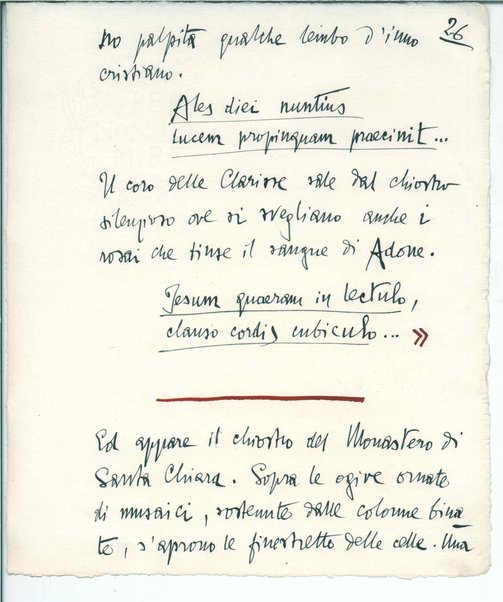 26
sto palpita qualche lembo d'inno
cristiano.
Ales diei nuntius
lucem propinquam praecinit...
Il coro delle Clarisse sale dal chiostro
silenzioso ove si svegliano anche i
rosai che tinse il sangue di Adone.
Jesum quaeram in lectulo,
clauso cordis cubiculo... »
Ed appare il chiostro del Monastero di
Santa Chiara. Sopra le ogive ornate
di musaici, sostenute dalle colonne bina
te, s'aprono le finestrette delle celle. Una